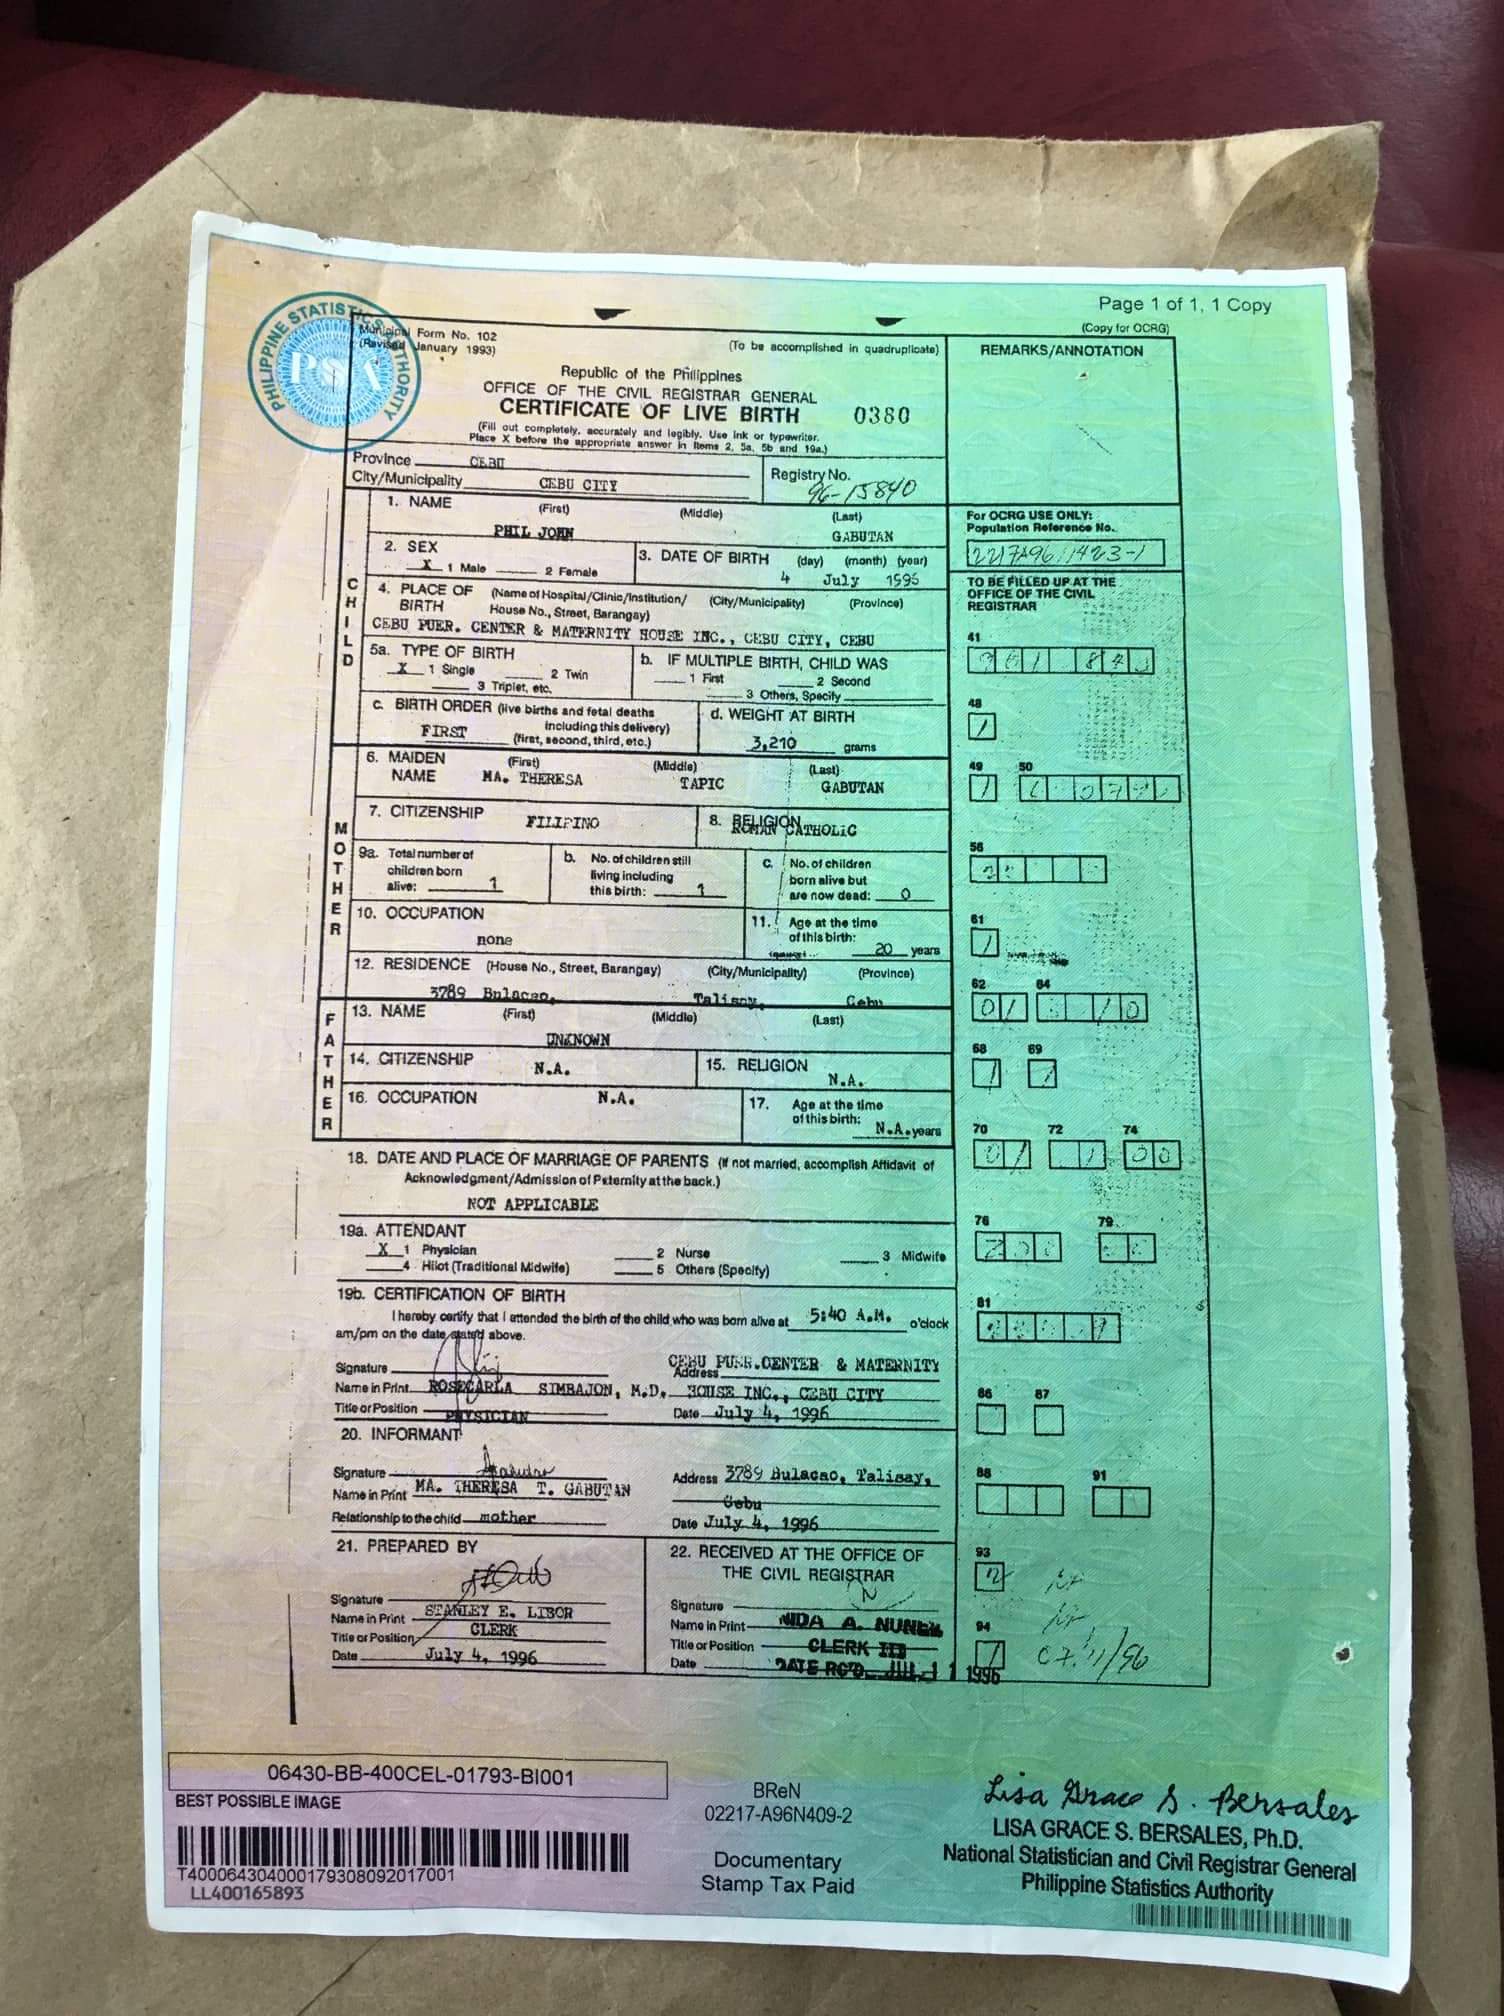 Page 1 of 1, 1 Copy
(Copy for OCRG)
PHILIPPINE STATISTICS AUTHORITY
PSA
Municipal Form No. 102
(Revised January 1993)
(To be accomplished in quadruplicate)
REMARKS/ANNOTATION
Republic of the Philippines
OFFICE OF THE CIVIL REGISTRAR GENERAL
CERTIFICATE OF LIVE BIRTH 0380
(Fill out completely, accurately and legibly. Use ink or typewriter.
Place X before the appropriate answer in items 2, 5a, 5b and 19a.)
Province CEBU
City/Municipality CEBU CITY
Registry No. 96-15840
CHILD
1. NAME (First) (Middle) (Last)
PHIL JOHN GABUTAN
For OCRG USE ONLY:
Population Reference No.
2. SEX
X 1 Male 2 Female
3. DATE OF BIRTH (day) (month) (year)
4 July 1996
TO BE FILLED UP AT THE
OFFICE OF THE CIVIL
REGISTRAR
4. PLACE OF BIRTH (Name of Hospital/Clinic/Institution/ House No., Street, Barangay) (City/Municipality) (Province)
CEBU PUER. CENTER & MATERNITY HOUSE INC., CEBU CITY, CEBU
41
5a. TYPE OF BIRTH
X 1 Single 2 Twin
3 Triplet, etc.
b. IF MULTIPLE BIRTH, CHILD WAS
1 First 2 Second
3 Others, Specify
c. BIRTH ORDER (live births and fetal deaths
including this delivery)
FIRST (first, second, third, etc.)
d. WEIGHT AT BIRTH
3,210 grams
48
1
MOTHER
6. MAIDEN NAME (First) (Middle) (Last)
MA. THERESA TAPIC GABUTAN
49 50
1
7. CITIZENSHIP FILIPINO
8. RELIGION
ROMAN CATHOLIC
9a. Total number of
children born
alive: 1
b. No. of children still
living including
this birth: 1
c. No. of children
born alive but
are now dead: 0
56
10. OCCUPATION
none
11. Age at the time
of this birth:
20 years
61
1
12. RESIDENCE (House No., Street, Barangay) (City/Municipality) (Province)
3789 Bulacao, Talisay, Cebu
62 64
01
FATHER
13. NAME (First) (Middle) (Last)
UNKNOWN
14. CITIZENSHIP N.A.
15. RELIGION
N.A.
68 69
1 1
16. OCCUPATION N.A.
17. Age at the time
of this birth:
N.A. years
70 72 74
01 1 00
18. DATE AND PLACE OF MARRIAGE OF PARENTS (If not married, accomplish Affidavit of
Acknowledgment/Admission of Paternity at the back.)
NOT APPLICABLE
19a. ATTENDANT
X 1 Physician 2 Nurse 3 Midwife
4 Hilot (Traditional Midwife) 5 Others (Specify)
76 79
19b. CERTIFICATION OF BIRTH
I hereby certify that I attended the birth of the child who was born alive at 5:40 A.M. o'clock
am/pm on the date stated above.
81
Signature
CEBU PUER.CENTER & MATERNITY
Address
Name in Print ROSECARLA SIMBAJON, M.D. HOUSE INC., CEBU CITY
Title or Position PHYSICIAN
Date July 4, 1996
86 87
20. INFORMANT
Signature
Address 3789 Bulacao, Talisay,
Name in Print MA. THERESA T. GABUTAN
Cebu
Relationship to the child mother
Date July 4, 1996
88 91
21. PREPARED BY
22. RECEIVED AT THE OFFICE OF
THE CIVIL REGISTRAR
93
2
Signature
Signature
Name in Print STANLEY E. LIBOR
Name in Print NIDA A. NUNEZ
Title or Position CLERK
Title or Position CLERK III
94
1
Date July 4, 1996
Date DATE RC'D. JUL 11 1996
06430-BB-400CEL-01793-BI001
BEST POSSIBLE IMAGE
T400064304000179308092017001
LL400165893
BReN
02217-A96N409-2
Documentary
Stamp Tax Paid
Lisa Grace S. Bersales
LISA GRACE S. BERSALES, Ph.D.
National Statistician and Civil Registrar General
Philippine Statistics Authority